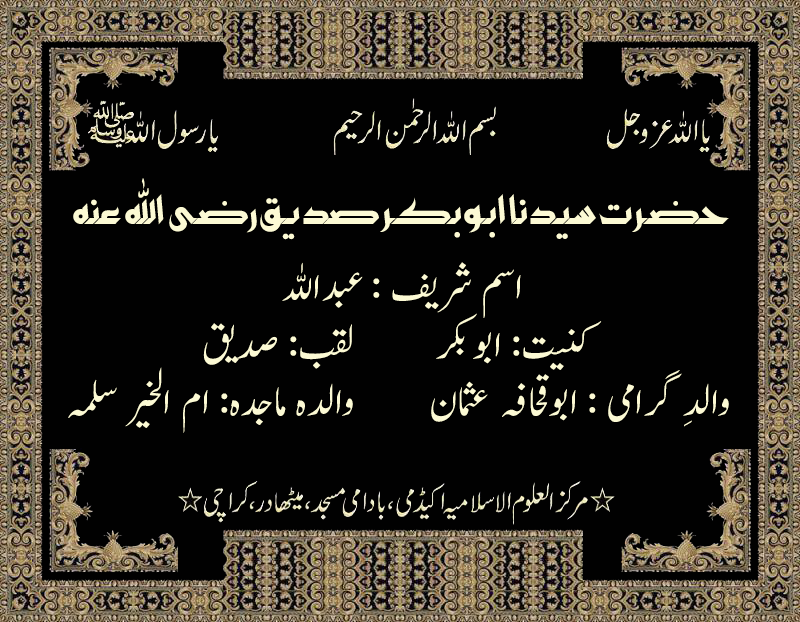 یااللہ عزوجل بسم اللہ الرحمٰن الرحیم یارسول اللہ ﷺ
حضرت سیدنا ابوبکر صدیق رضی اللہ عنہ
اسم شریف : عبداللہ
کنیت: ابوبکر لقب: صدیق
والدِ گرامی : ابوقحافہ عثمان والدہ ماجدہ: ام الخیر سلمہ
☆مرکز العلوم الاسلامیہ اکیڈمی، بادامی مسجد، میٹھادر، کراچی☆